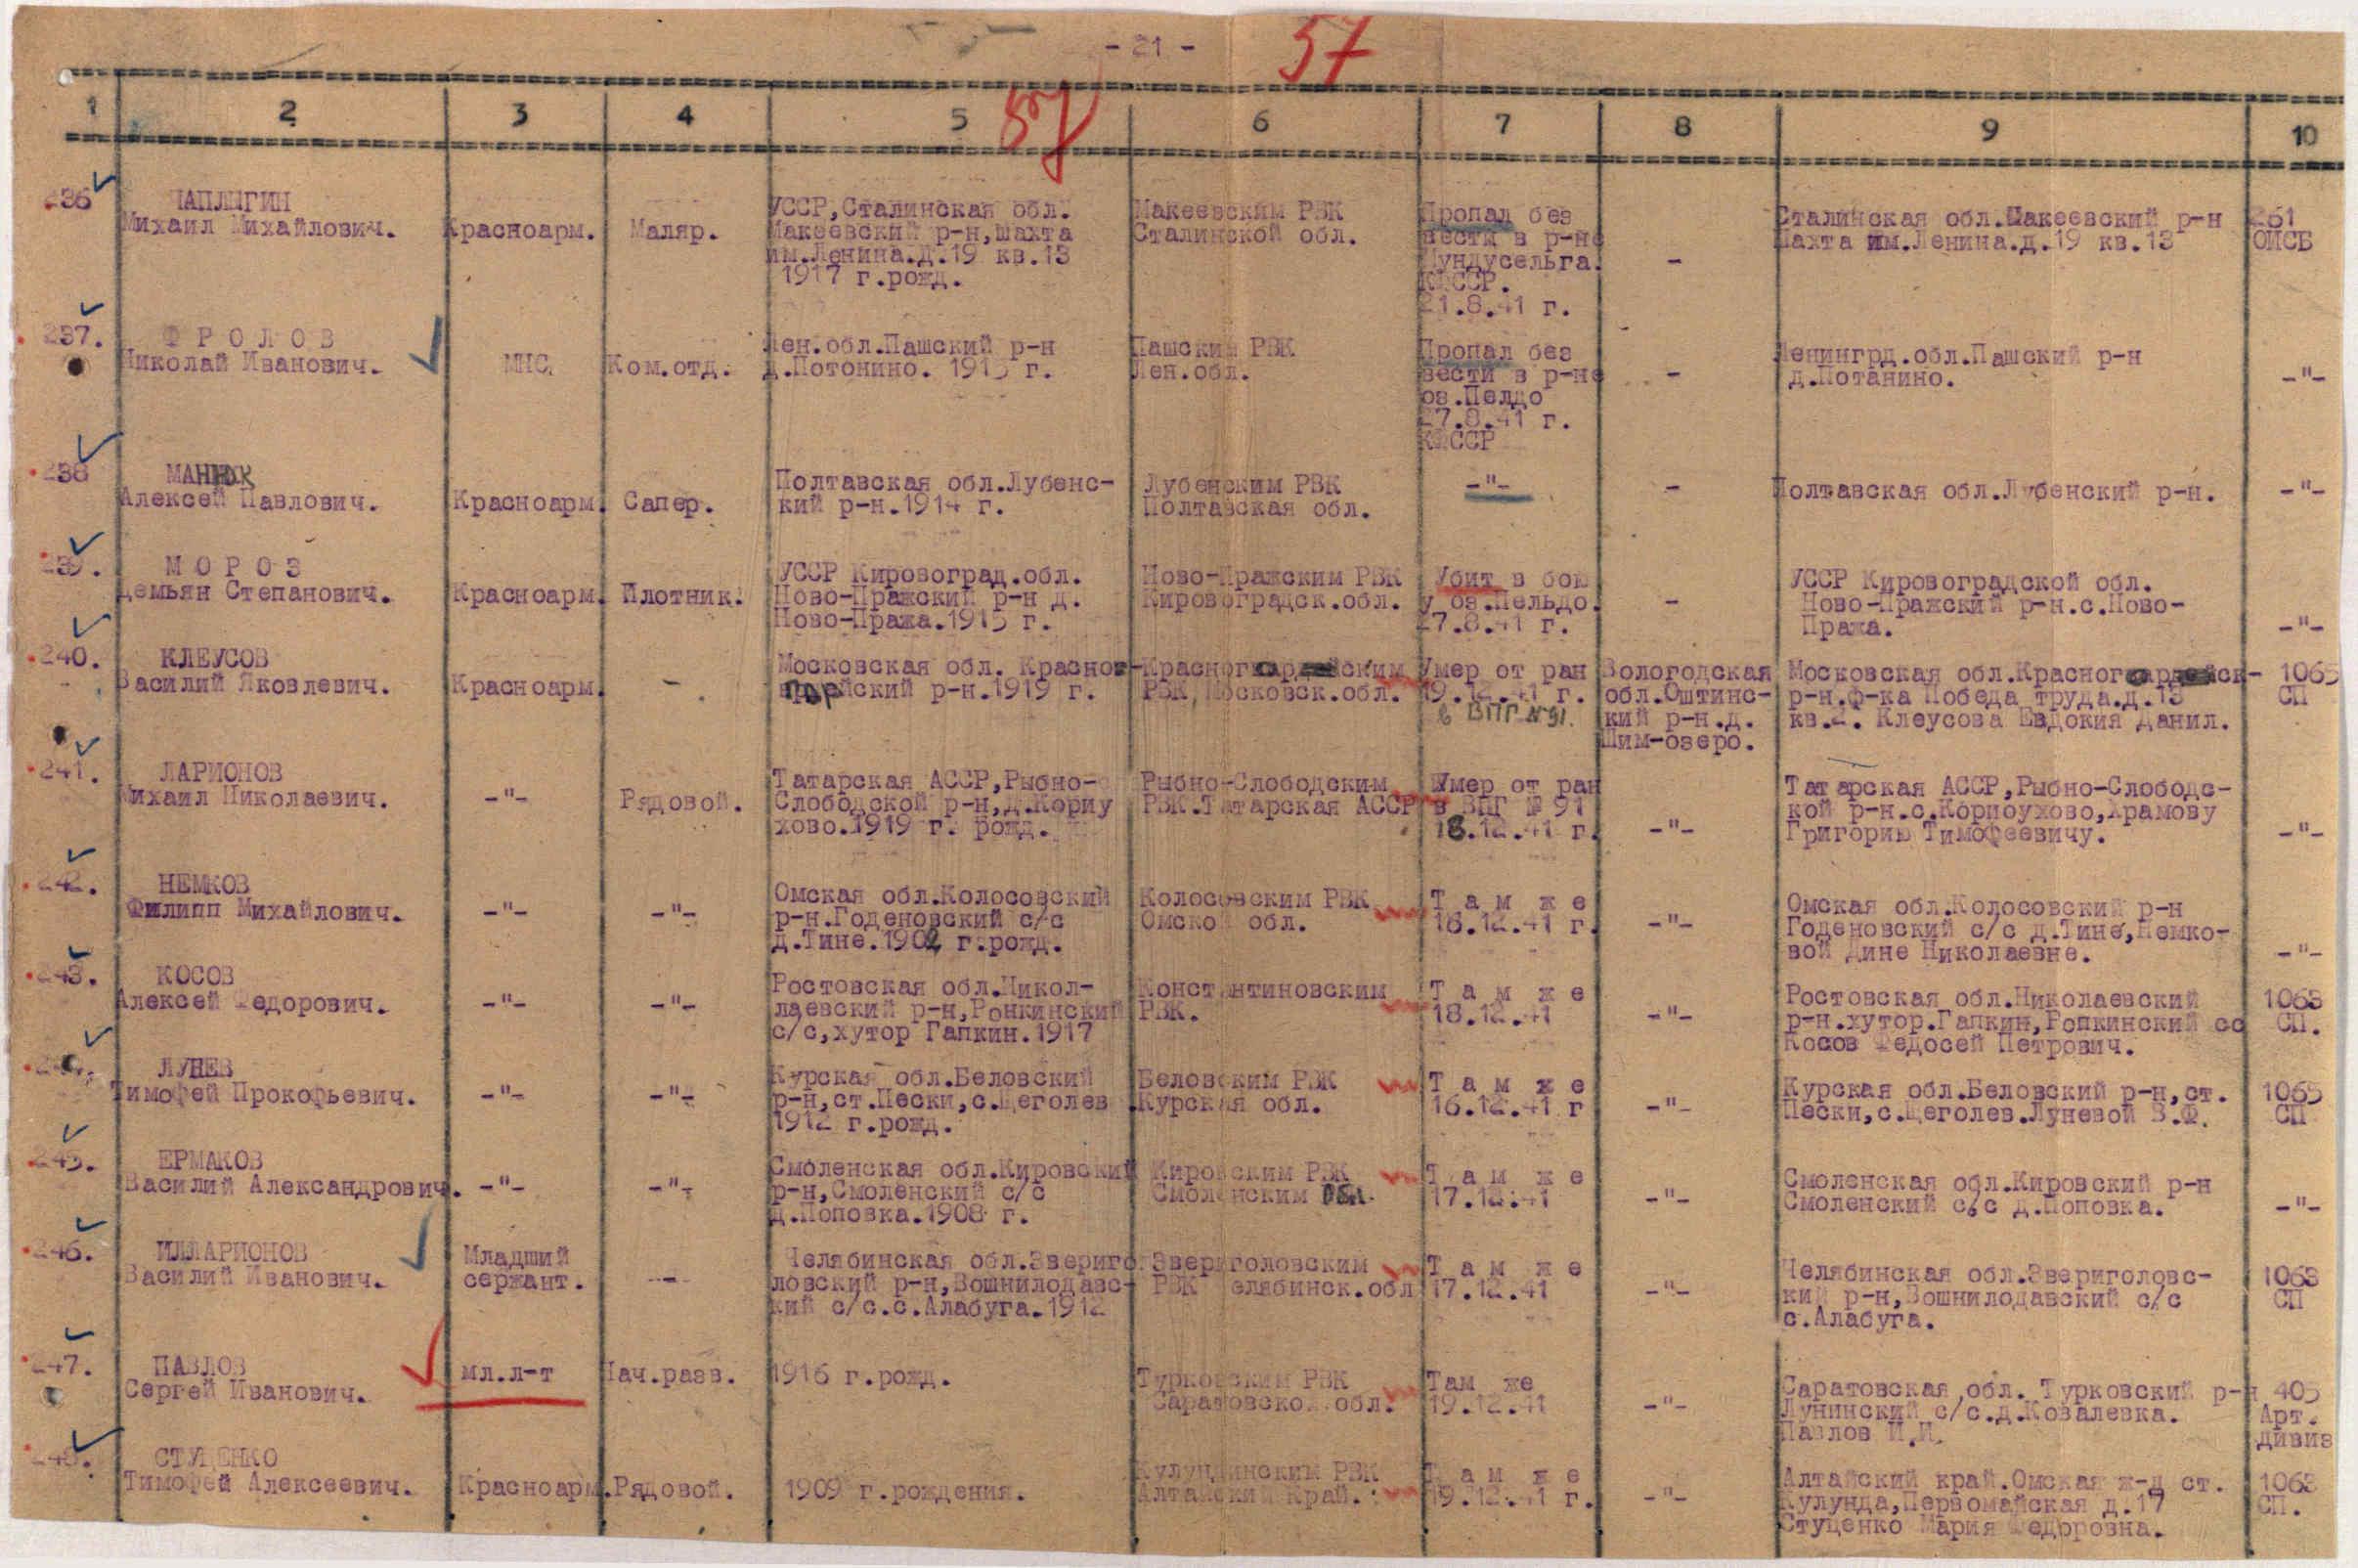 - 21 -
57
57
1 2 3 4 5 6 7 8 9 10
236
ЧАПЛЫГИН
Михаил Михайлович.
Красноарм.
Маляр.
УССР,Сталинская обл.
Макеевский р-н,шахта
им.Ленина.д.19 кв.13
1917 г.рожд.
Макеевским РВК
Сталинской обл.
Пропал без
вести в р-не
КФССР.
21.8.41 г.
-
Сталинская обл.Макеевский р-н
шахта им.Ленина.д.19 кв.13
261
ОИСБ
237.
ФРОЛОВ
Николай Иванович.
МНС.
Ком.отд.
Лен.обл.Пашский р-н
д.Потонино. 1915 г.
Пашским РВК
Лен.обл.
Пропал без
вести в р-не
оз.Пелдо
27.8.41 г.
КФССР
-
Ленингрд.обл.Пашский р-н
д.Потанино.
-"-
238
МАНЮК
Алексей Павлович.
Красноарм.
Сапер.
Полтавская обл.Лубенс-
кий р-н.1914 г.
Лубенским РВК
Полтавская обл.
-"-
-
Полтавская обл.Лубенский р-н.
-"-
239.
МОРОЗ
Демьян Степанович.
Красноарм.
Плотник.
УССР Кировоград.обл.
Ново-Пражский р-н д.
Ново-Пража.1915 г.
Ново-Пражским РВК
Кировоградск.обл.
Убит в бою
у оз.Пельдо.
27.8.41 г.
-
УССР Кировоградской обл.
Ново-Пражский р-н.с.Ново-
Пража.
-"-
240.
КЛЕУСОВ
Василий Яковлевич.
Красноарм.
-.
Московская обл. Красног-
йский р-н.1919 г.
РВК,Московск.обл.
Умер от ран
19.12.41 г.
в ВПГ №91.
Вологодская
обл.Оштинс-
кий р-н.д.
Шим-озеро.
Московская обл.
р-н.ф-ка Победа труда.д.13
кв.2. Клеусова Евдокия Данил.
1065
СП
241.
ЛАРИОНОВ
Михаил Николаевич.
-"-
Рядовой.
Татарская АССР,Рыбно-
Слободской р-н,д.Кориу
хово.1919 г. рожд.
Рыбно-Слободским
РВК.Татарская АССР
Умер от ран
в ВПГ № 91
18.12.41 г.
-"-
Татарская АССР,Рыбно-Слободс-
кой р-н.с.Кориоухово,Храмову
Григорию Тимофеевичу.
-"-
242.
НЕМКОВ
Филипп Михайлович.
-"-
-"-
Омская обл.Колосовский
р-н.Годеновский с/с
д.Тине.1902 г.рожд.
Колосовским РВК
Омской обл.
Там же
16.12.41 г.
-"-
Омская обл.Колосовский р-н
Годеновский с/с д.Тине,Немко-
вой Дине Николаевне.
-"-
243.
КОСОВ
Алексей Федорович.
-"-
-"-
Ростовская обл.Никол-
лаевский р-н,Ронкинский
с/с,хутор Гапкин.1917
Константиновским
РВК.
Там же
18.12.41
-"-
Ростовская обл.Николаевский
р-н.хутор.Гапкин,Ронкинский сс
Косов Федосей Петрович.
1063
СП.
244.
ЛУНЕВ
Тимофей Прокофьевич.
-"-
-"-
Курская обл.Беловский
р-н,ст.Пески,с.Щеголев
1912 г.рожд.
Беловским РВК
Курская обл.
Там же
16.12.41 г
-"-
Курская обл.Беловский р-н,ст.
Пески,с.Щеголев.Луневой В.Ф.
1065
СП
245.
ЕРМАКОВ
Василий Александрович.
-"-
-"-
Смоленская обл.Кировский
р-н,Смоленский с/с
д.Поповка.1908 г.
Кировским РВК
Смоленским обл.
Там же
17.12.41
-"-
Смоленская обл.Кировский р-н
Смоленский с/с д.Поповка.
-"-
246.
ИЛЛАРИОНОВ
Василий Иванович.
Младший
сержант.
-
Челябинская обл.Звериго
ловский р-н,Вошнилодавс-
кий с/с.с.Алабуга.1912
Звериголовским
РВК Челябинск.обл
Там же
17.12.41
-"-
Челябинская обл.Звериголовс-
кий р-н,Вошнилодавский с/с
с.Алабуга.
1063
СП
247.
ПАВЛОВ
Сергей Иванович.
мл.л-т
Нач.разв.
1916 г.рожд.
Турковским РВК
Саратовской обл.
Там же
19.12.41
-"-
Саратовская обл. Турковский р-н
Лунинский с/с.д.Ковалевка.
Павлов И.И.
405
Арт.
дивиз
248.
СТУЦЕНКО
Тимофей Алексеевич.
Красноарм.
Рядовой.
1909 г.рождения.
Кулундинским РВК
Алтайский Край.
Там же
19.12.41 г.
-"-
Алтайский край.Омская ж-д ст.
Кулунда,Первомайская д.17
Стуценко Мария Федоровна.
1063
СП.